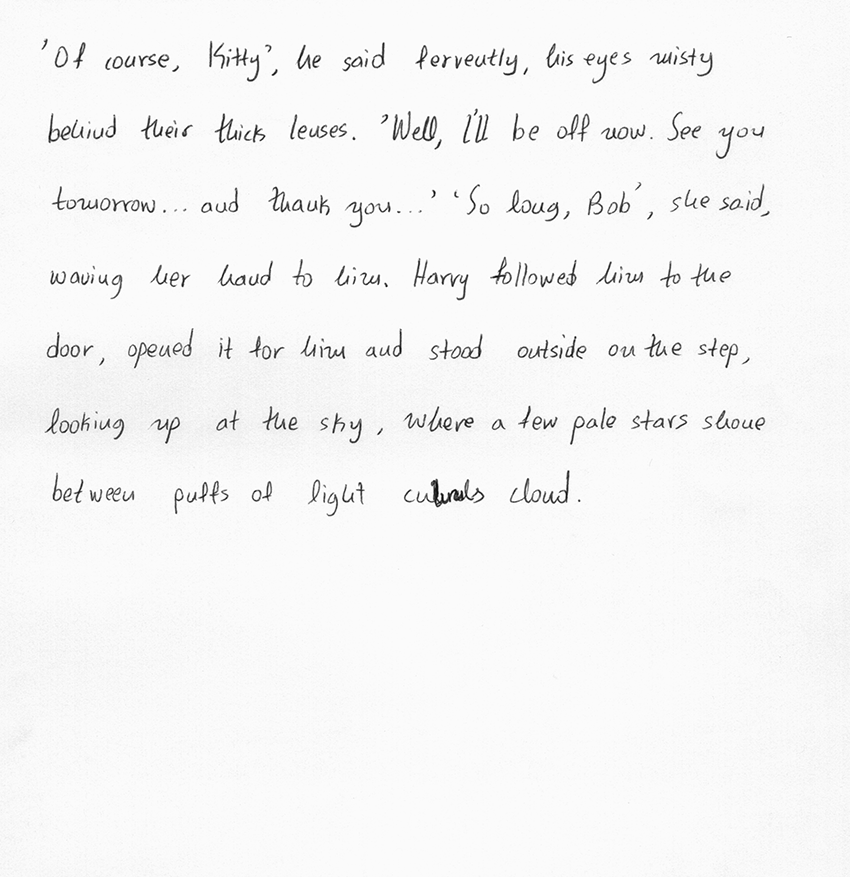 'Of course, Kitty', he said fervently, his eyes misty
behind their thick lenses. 'Well, I'll be off now. See you
tomorrow... and thank you...' 'So long, Bob', she said,
waving her hand to him. Harry followed him to the
door, opened it for him and stood outside on the step,
looking up at the sky, where a few pale stars shone
between puffs of light cloud.